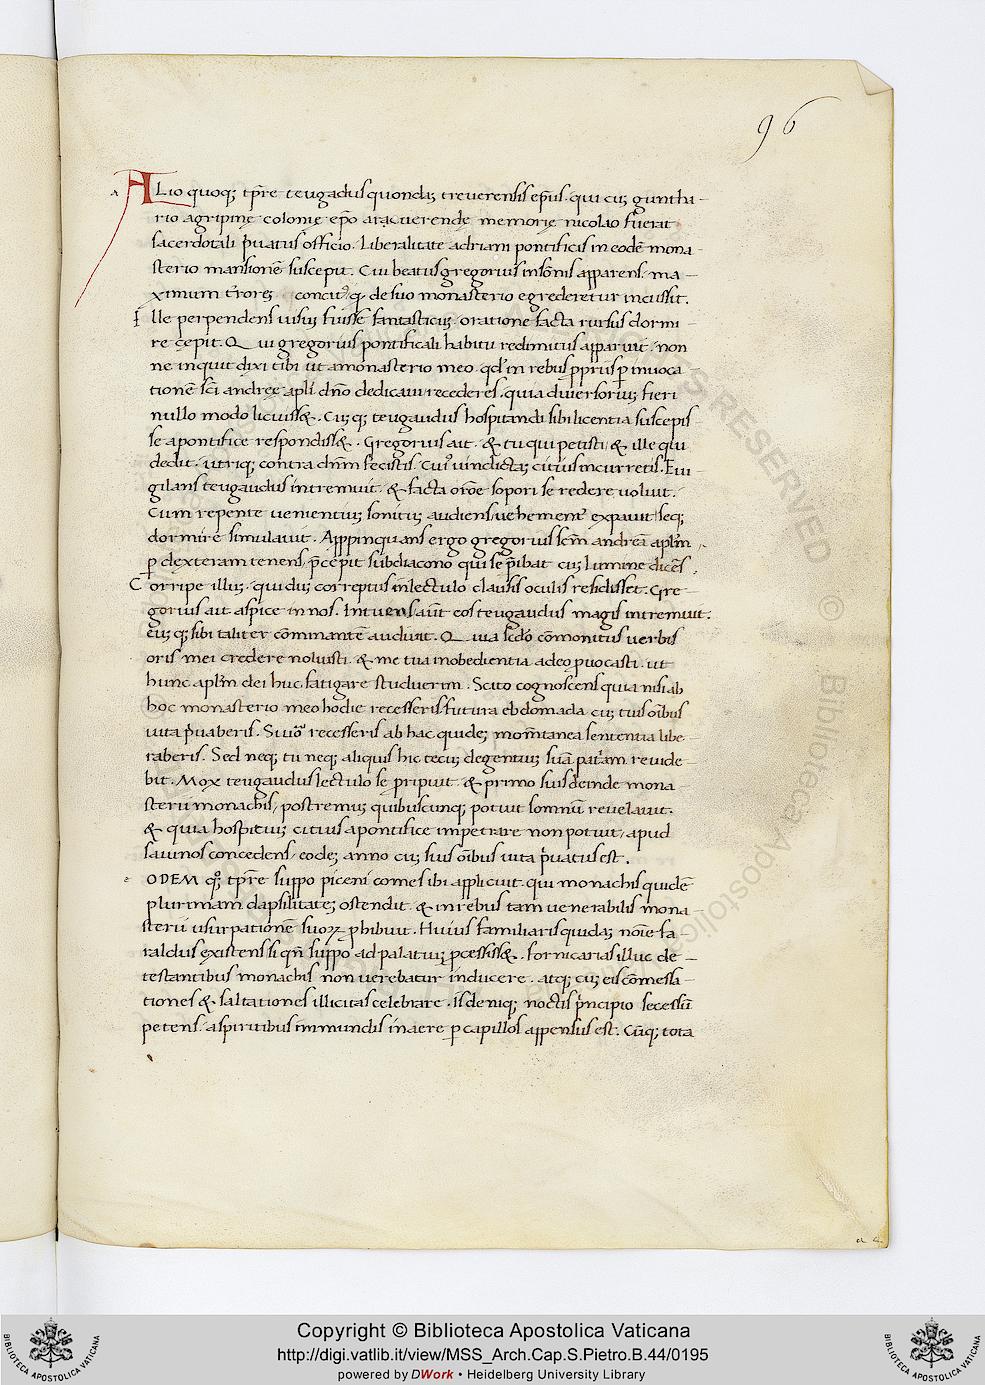 96
ALio quoq; tp̄re teugaduſ quondā treverenſiſ ep̄uſ. qui cū guntha-
rio agripinę colonię ep̄o aracuerendę memorię nicolao fuerat
ſacerdotali p̄uatuſ officio. Liberalitate adriani pontificiſ in eodē mona-
ſterio manſionē ſuſcepit. Cui beatuſ gregoriuſ inſōniſ apparenſ. ma-
ximum t̄rorē concut̄ q; de ſuo monaſterio egrederetur incuſſit.
Ille perpendenſ uiſū fuiſſe fantaſticū. oratione facta rurſuſ dormi-
re cępit. Qui gregoriuſ pontificali habitu redimituſ apparuit. non
ne inquit dixi tibi ut a monaſterio meo. qd̓ in rebuſ ꝓpriiſ ꝑ inuoca
tionē ſc̄i andreę apl̄i dn̄o dedicaui recedereſ. quia diuerſoriū fieri
nullo modo licuiſſ&. Cūq; teugauduſ hoſpitandi ſibi licentiā ſuſcepiſ-
ſe a pontifice reſpondiſſ&. Gregoriuſ ait. & tu qui petiſti & ille qui
dedit. utriq; contra dn̄m feciſtiſ. Cui᷒ uindictā cituiſ incurretiſ. Eui-
gilanſ teugauduſ intremuit. & facta orōe ſopori ſe redere uoluit.
Cum repente uenientiū ſonitū audienſ uehement̄ expauit ſeq;
dormire ſimulauit. Apppinquanſ ergo gregoriuſ ſc̄m andreā apl̄m
ꝑ dexteram tenenſ. p̄cepit ſubdiacono qui ſe p̄ibat cū lumine dicēſ.
Corripe illū. qui dū correptuſ in lectulo clauſiſ oculiſ reſidiſſet. Gre-
goriuſ ait aſpice in noſ. Intuenſ aūt eoſ teugauduſ magiſ intremuit.
Eūq; ſibi taliter cōminantē audiuit. Quia ſcd̓o cōmonituſ uerbiſ
oriſ mei credere noluiſti. & me tua inobedientia adeo ꝓuocaſti. ut
hunc apl̄m dei huc fatigare ſtuduerim. Scito cognoſcenſ quia niſi ab
hoc monaſterio meo hodie receſſeriſ. futura ebdomada cū tuiſ oībuſ
uita p̄uaberiſ. Si uō receſſeriſ ab hac quidē momtanea ſententia libe-
raberiſ. Sed neq; tu neq; aliquiſ hic tecū degentiū ſuā pat̄am reuide-
bit. Mox teugauduſ lectulo ſe pripuit. & primo ſuiſ deinde mona-
ſterii monachiſ. poſtremū quibuſcunq; potuit ſomnū reuelauit.
& quia hoſpitiū cituiſ a pontifice impetrare non potuit. apud
ſauinoſ concedenſ. eodē anno cū ſuiſ oībuſ uita p̄uatuſ eſt.
EODEM q; tp̄re ſuppo piceni comeſ ibi applicuit. qui monachiſ quidē
plurimam dapſilitatē oſtendit. & in rebuſ tam uenerabiliſ mona-
ſterii uſurpationē ſuoꝝ phibuit. Huiuſ familiariſ quidā noīe fa-
ralduſ exiſtenſ ſi qn̄ ſuppo ad palatiū pceſſiſſ&. fornicariaſ illuc de-
teſtantibuſ monachiſ non uerebatur inducere. atq; cū eiſ cōmeſſa-
tioneſ & ſaltationeſ illicitaſ celebrare. Iſ deniq; noctiſ p̄ncipio ſeceſſū
petenſ. a ſpiritibuſ immundiſ in aere ꝑ capilloſ appenſuſ eſt. Cūq; tota
Copyright © Biblioteca Apostolica Vaticana
http://digi.vatlib.it/view/MSS_Arch.Cap.S.Pietro.B.44/0195
powered by DWork • Heidelberg University Library